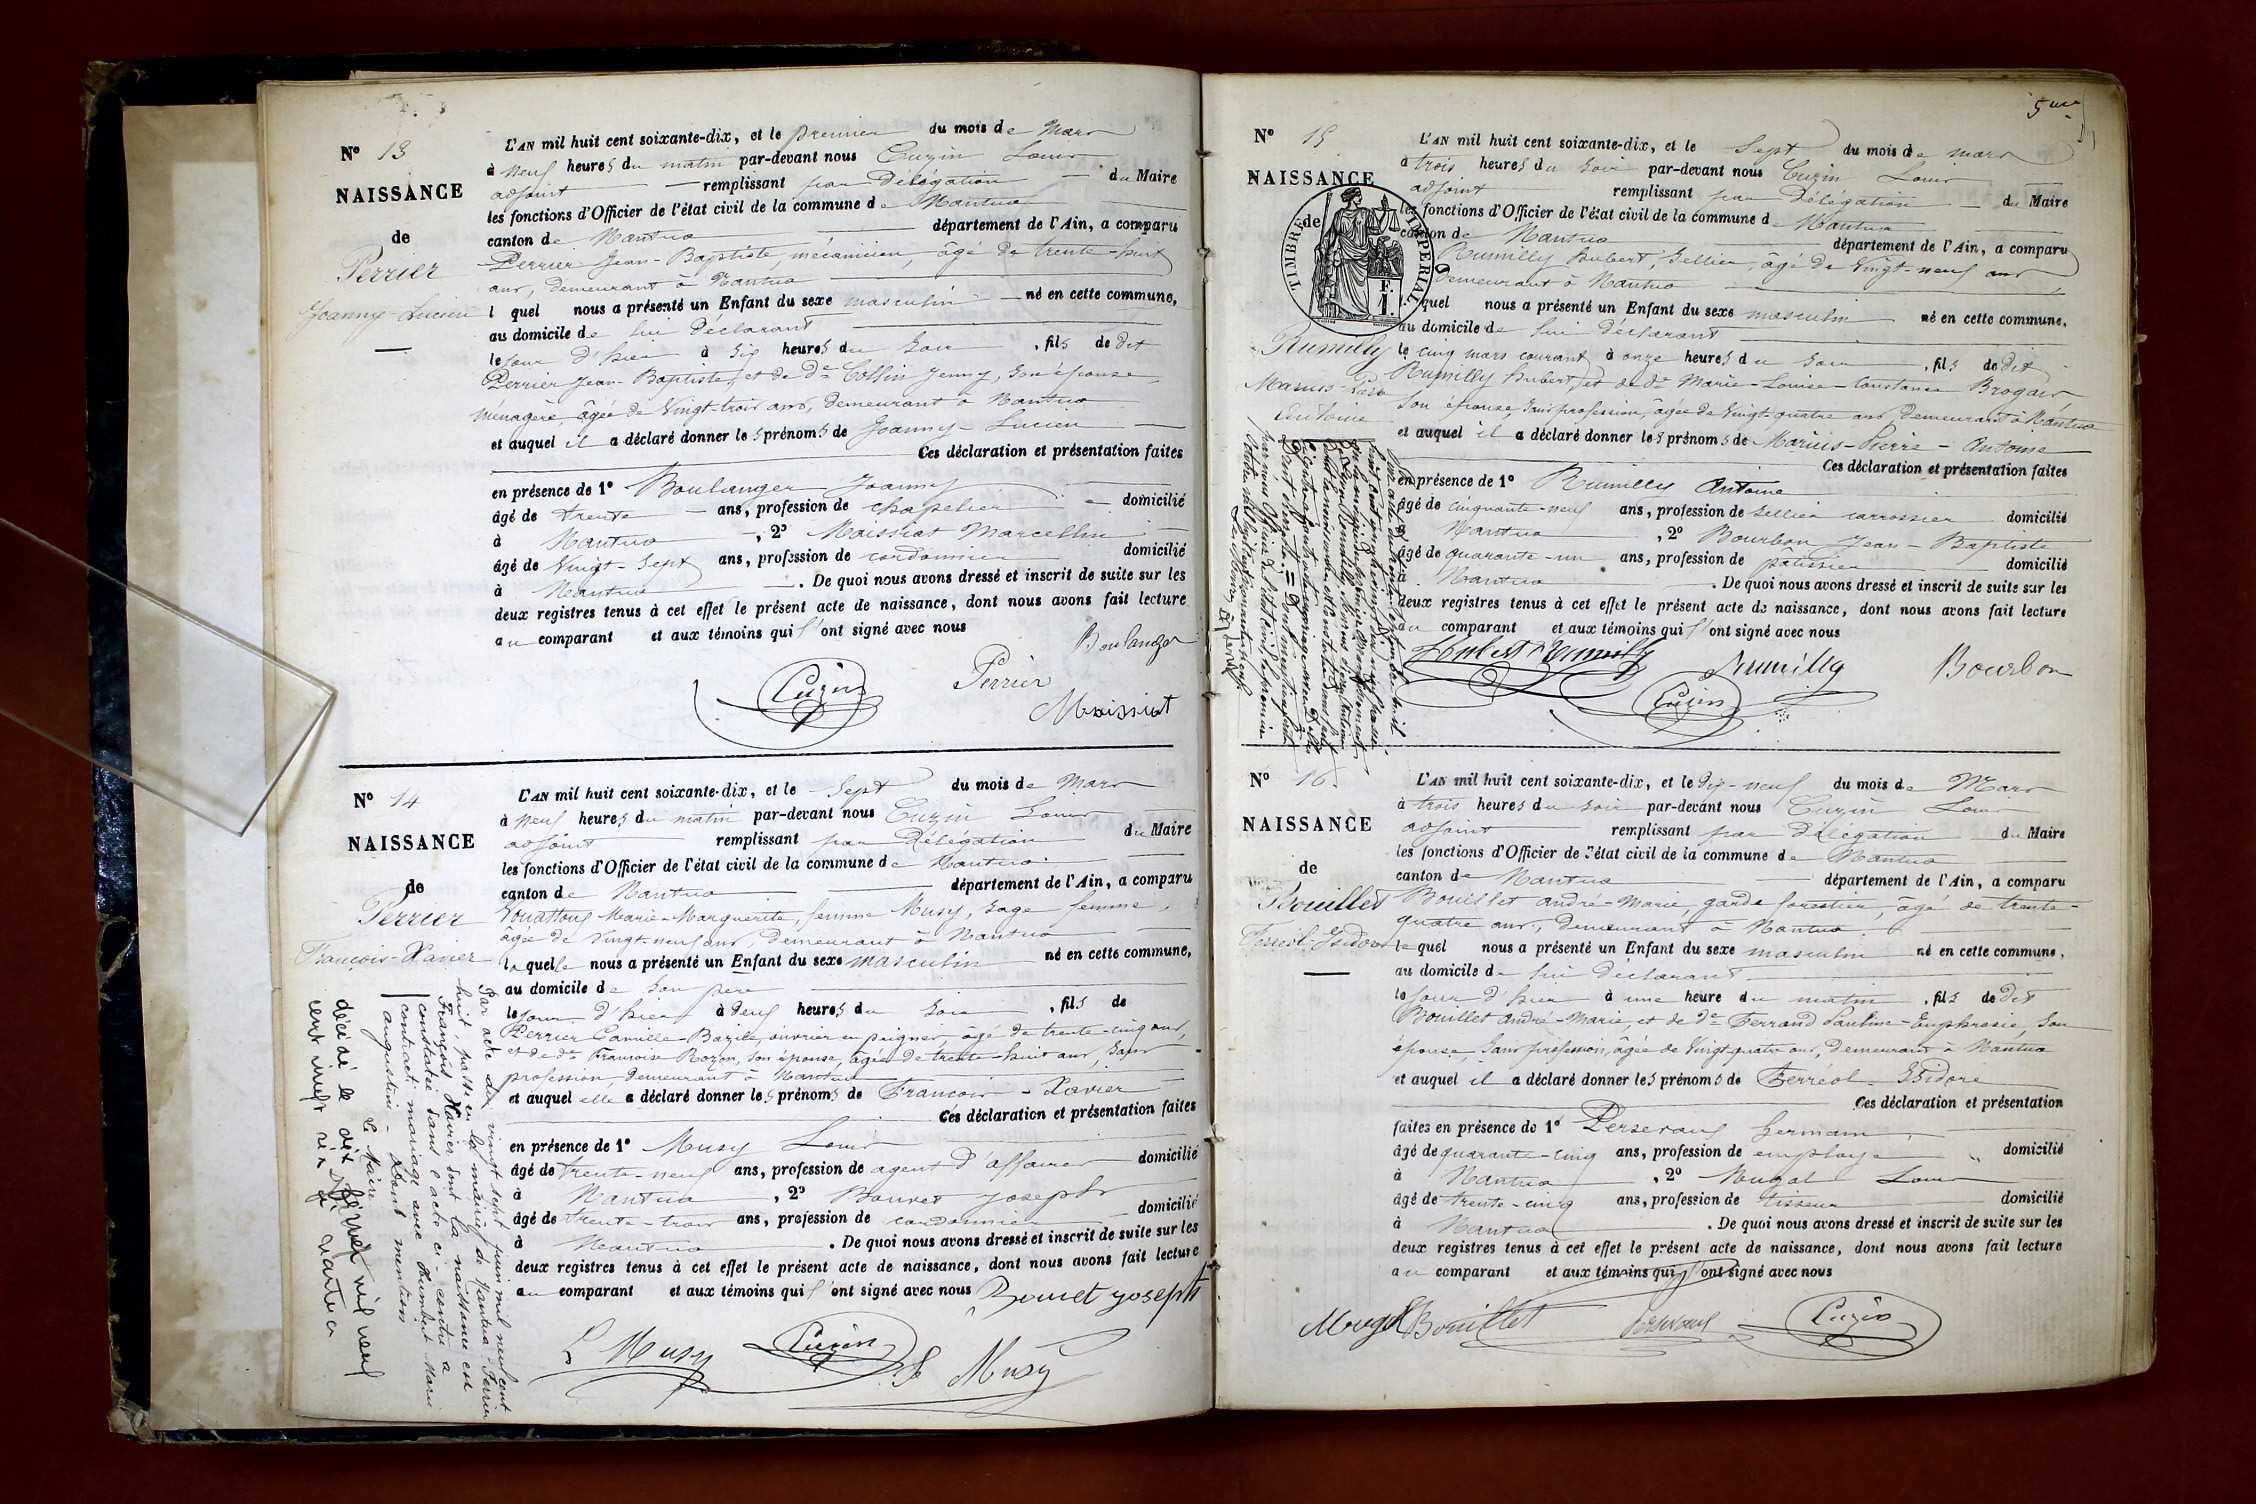 Nº 13
NAISSANCE
de
Perrier
Joanny-Lucien
L'AN mil huit cent soixante-dix, et le premier du mois de Mars
à neuf heures du matin par-devant nous Cuzin Louis
adjoint remplissant par Délégation du Maire
les fonctions d'Officier de l'état civil de la commune de Nantua
canton de Nantua département de l'Ain, a comparu
Perrier Jean-Baptiste, mécanicien, âgé de trente-huit
ans, demeurant à Nantua
l quel nous a présenté un Enfant du sexe masculin né en cette commune,
au domicile de lui déclarant
le jour d'hier à six heures du soir, fils de dit
Perrier Jean-Baptiste, et de de Collin Jenny, son épouse,
ménagère, âgée de vingt-trois ans, demeurant à Nantua
et auquel il a déclaré donner les prénoms de Joanny-Lucien
Ces déclaration et présentation faites
en présence de 1º Boulanger Joanny
âgé de trente ans, profession de chapelier domicilié
à Nantua, 2º Maissiat Marcellin
âgé de vingt-sept ans, profession de cordonnier domicilié
à Nantua. De quoi nous avons dressé et inscrit de suite sur les
deux registres tenus à cet effet le présent acte de naissance, dont nous avons fait lecture
au comparant et aux témoins qui l'ont signé avec nous
Boulanger
Cuzin Perrier
Maissiat
Nº 14
NAISSANCE
de
Perrier
François-Xavier
L'AN mil huit cent soixante-dix, et le sept du mois de Mars
à neuf heures du matin par-devant nous Cuzin Louis
adjoint remplissant par Délégation du Maire
les fonctions d'Officier de l'état civil de la commune de Nantua
canton de Nantua département de l'Ain, a comparu
Marie-Marguerite, femme Musy, sage femme,
âgée de vingt-neuf ans, demeurant à Nantua
laquelle nous a présenté un Enfant du sexe masculin né en cette commune,
au domicile de son père
le jour d'hier à deux heures du soir, fils de
Perrier Camille-Bazile, ouvrier en peignes, âgé de trente-cinq ans,
et de de Françoise Rozon, son épouse, âgée de trente-huit ans, sans
profession, demeurant à Nantua
et auquel elle a déclaré donner les prénoms de François-Xavier
Ces déclaration et présentation faites
en présence de 1º Musy Louis
âgé de trente-neuf ans, profession de agent d'affaires domicilié
à Nantua, 2º Bouvet Joseph
âgé de trente-trois ans, profession de cordonnier domicilié
à Nantua. De quoi nous avons dressé et inscrit de suite sur les
deux registres tenus à cet effet le présent acte de naissance, dont nous avons fait lecture
au comparant et aux témoins qui l'ont signé avec nous Bouvet Joseph
L Musy Cuzin Musy
Par acte du vingt sept juin mil neuf cent
huit, passé en la mairie de Nantua, Perrier
François Xavier, dont la naissance est
constatée dans l'acte ci contre a
contracté mariage avec Humbert Marie
augustine - Dont mention
Le Maire
décédé le dix
cent vingt six à Nantua
5me
Nº 15
NAISSANCE
de
TIMBRE IMPERIAL
1 F.
Rumilly
Marius-Pierre
Antoine
L'AN mil huit cent soixante-dix, et le sept du mois de mars
à trois heures du soir par-devant nous Cuzin Louis
adjoint remplissant par Délégation du Maire
les fonctions d'Officier de l'état civil de la commune de Nantua
canton de Nantua département de l'Ain, a comparu
Rumilly Hubert, sellier, âgé de vingt-neuf ans
demeurant à Nantua
quel nous a présenté un Enfant du sexe masculin né en cette commune,
au domicile de lui déclarant
le cinq mars courant à onze heures du soir, fils de dit
Rumilly Hubert, et de de Marie-Louise-Constance
son épouse, sans profession, âgée de vingt quatre ans demeurant à Nantua
et auquel il a déclaré donner les prénoms de Marius-Pierre-Antoine
Ces déclaration et présentation faites
en présence de 1º Rumilly Antoine
âgé de cinquante-neuf ans, profession de sellier carrossier domicilié
à Nantua, 2º Bourbon Jean-Baptiste
âgé de quarante-un ans, profession de pâtissier domicilié
à Nantua. De quoi nous avons dressé et inscrit de suite sur les
deux registres tenus à cet effet le présent acte de naissance, dont nous avons fait lecture
au comparant et aux témoins qui l'ont signé avec nous
Hubert Rumilly Rumilly Bourbon
Cuzin
Nº 16
NAISSANCE
de
Bouillet
Ferréol-Isidore
L'AN mil huit cent soixante-dix, et le dix-neuf du mois de Mars
à trois heures du soir par-devant nous Cuzin Louis
adjoint remplissant par délégation du Maire
les fonctions d'Officier de l'état civil de la commune de Nantua
canton de Nantua département de l'Ain, a comparu
Bouillet André-Marie, garde forestier, âgé de trente-
quatre ans, demeurant à Nantua
le quel nous a présenté un Enfant du sexe masculin né en cette commune,
au domicile de lui déclarant
le jour d'hier à une heure du matin, fils de dit
Bouillet André-Marie, et de de Ferrand Pauline-Euphrosie, son
épouse, sans profession, âgée de vingt quatre ans, demeurant à Nantua
et auquel il a déclaré donner les prénoms de Ferréol-Isidore
Ces déclaration et présentation
faites en présence de 1º Germain
âgé de quarante-cinq ans, profession de employé domicilié
à Nantua, 2º Louis
âgé de trente-cinq ans, profession de tisseur domicilié
à Nantua. De quoi nous avons dressé et inscrit de suite sur les
deux registres tenus à cet effet le présent acte de naissance, dont nous avons fait lecture
au comparant et aux témoins qui l'ont signé avec nous
Bouillet Cuzin